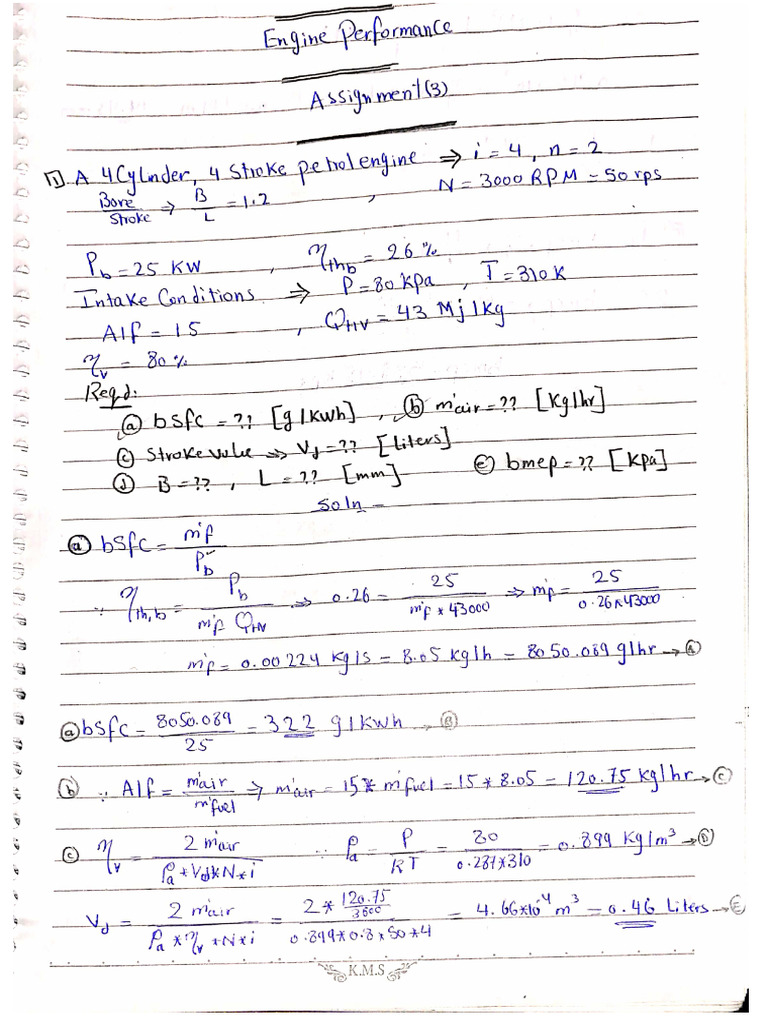 Engine Performance
Assignment (3)
① A 4 Cylnder, 4 stroke petrol engine ⇒ i = 4, n = 2
Bore/Stroke → B/L = 1.2 , N = 3000 RPM = 50 rps
P_b = 25 KW , η_thb = 26 %
Intake Conditions ⇒ P = 80 kpa , T = 310 K
A/f = 15 , Q_HV = 43 Mj/kg
η_v = 80 %
Reqd:
ⓐ bsfc = ?? [g/kwh] , ⓑ m˙air = ?? [Kg/hr]
ⓒ stroke volue ⇒ V_d = ?? [liters]
ⓓ B = ?? , L = ?? [mm] ⓔ bmep = ?? [kpa]
soln
ⓐ bsfc = m˙f / P_b
∵ η_th,b = P_b / (m˙f Q_HV) ⇒ 0.26 = 25 / (m˙f * 43000) ⇒ m˙f = 25 / (0.26 * 43000)
m˙f = 0.00224 kg/s = 8.05 kg/h = 8050.089 g/hr → Ⓐ
ⓐ bsfc = 8050.089 / 25 = 322 g/kwh → Ⓑ
ⓑ ∵ A/f = m˙air / m˙fuel ⇒ m˙air = 15 * m˙fuel = 15 * 8.05 = 120.75 kg/hr → Ⓒ
ⓒ η_v = 2 m˙air / (ρ_a * V_d * N * i) ∵ ρ_a = P / RT = 80 / (0.287 * 310) = 0.899 Kg/m³ → Ⓓ
V_d = 2 m˙air / (ρ_a * η_v * N * i) = (2 * 120.75/3600) / (0.899 * 0.8 * 50 * 4) = 4.66*10⁻⁴ m³ = 0.46 Liters → Ⓔ
K.M.S